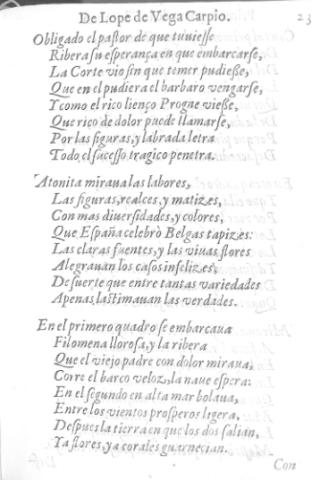 De Lope de Vega Carpio. 23
Obligado el paſtor de que tuuieſſe
Ribera su eſperança en que embarcarſe,
La Corte vio ſin que temer pudieſſe,
Que en el pudiera el barbaro vengarſe,
Y como el rico lienço Progne vieſſe,
Que rico de dolor puede llamarſe,
Por las figuras, y labrada letra
Todo el ſuceſſo tragico penetra.
Atonita miraua las labores,
Las figuras, realces, y matizes,
Con mas diuerſidades, y colores,
Que España celebrò Belgas tapizes:
Las claras fuentes, y las viuas flores
Alegrauan los caſos infelizes,
De ſuerte que entre tantas variedades
Apenas laſtimauan las verdades.
En el primero quadro ſe embarcaua
Filomena lloroſa, y la ribera
Que el viejo padre con dolor miraua,
Corre el barco veloz, la naue eſpera:
En el ſegundo en alta mar bolaua,
Entre los vientos proſperos ligera,
Deſpues la tierra en que los dos ſalian,
Ya flores, ya corales guarnecian.
Con